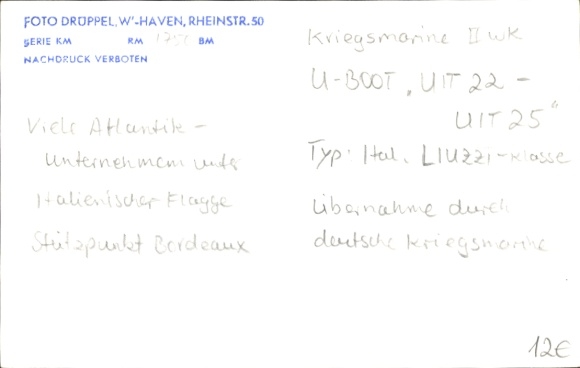 FOTO DRÜPPEL, W'-HAVEN, RHEINSTR. 50
SERIE KM RM 1750 BM
NACHDRUCK VERBOTEN
Viele Atlantik -
Unternehmen unter
Italienischer Flagge
Stützpunkt Bordeaux
Kriegsmarine II WK
U-BOOT „UIT 22 -
UIT 25“
Typ: Ital. LIUZZI-Klasse
Übernahme durch
deutsche Kriegsmarine
12€